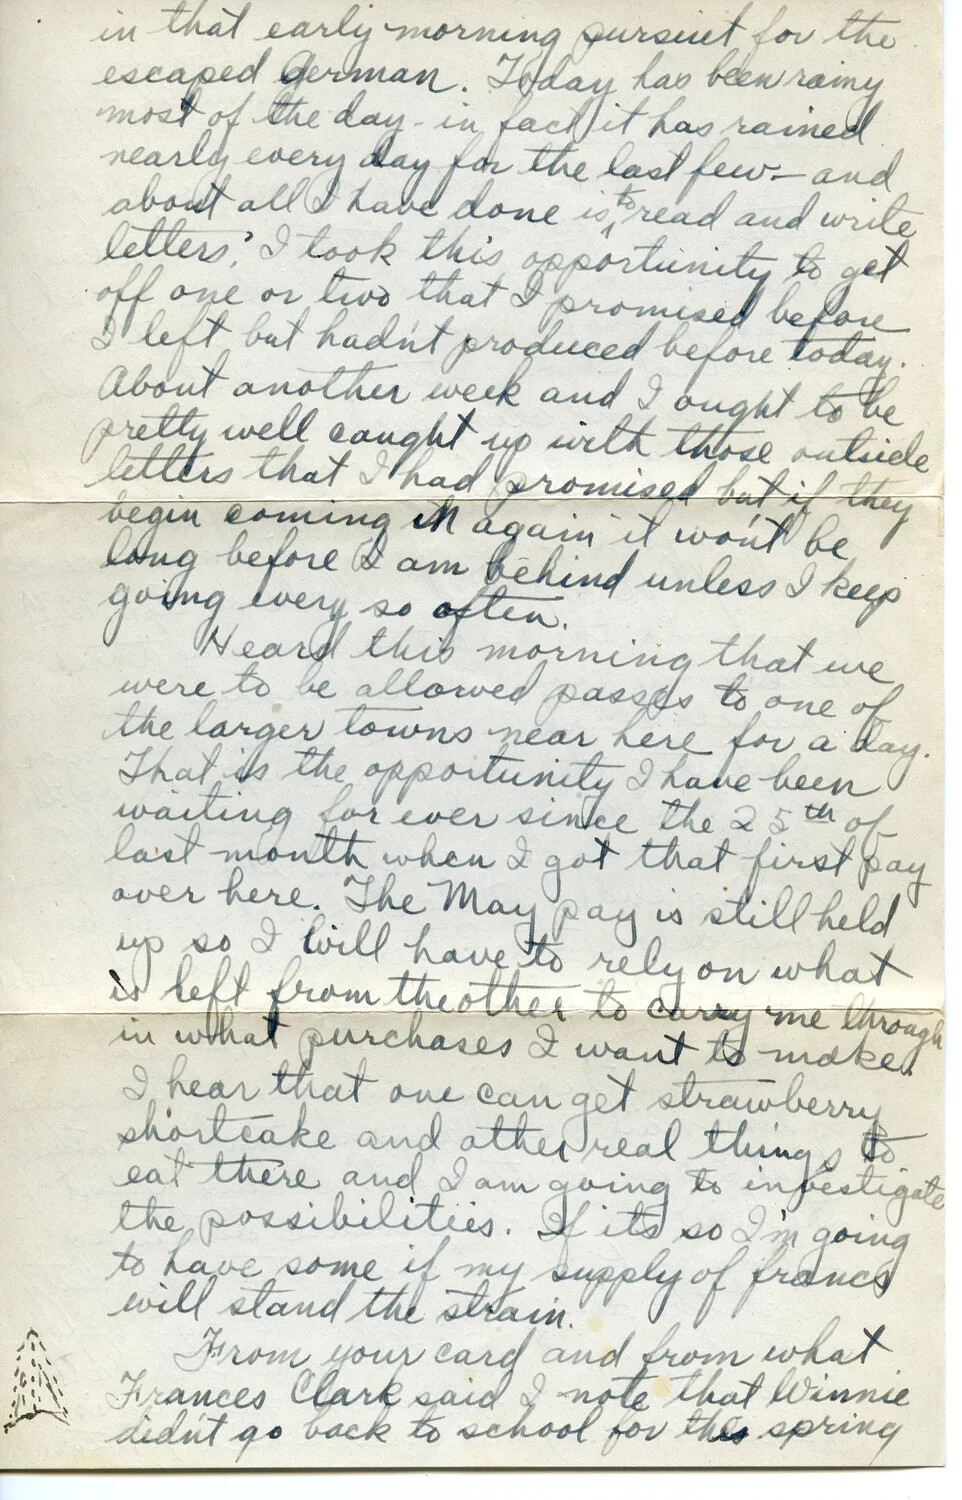 in that early morning pursuit for the
escaped German. Today has been rainy
most of the day - in fact it has rained
nearly every day for the last few - and
about all I have done is to read and write
letters. I took this opportunity to get
off one or two that I promised before
I left but hadn't produced before today.
About another week and I ought to be
pretty well caught up with those outside
letters that I had promised but if they
begin coming in again it won't be
long before I am behind unless I keep
going every so often.
Heard this morning that we
were to be allowed passes to one of
the larger towns near here for a day.
That is the opportunity I have been
waiting for ever since the 25th of
last month when I got that first pay
over here. The May pay is still held
up so I will have to rely on what
is left from the other to carry me through
in what purchases I want to make.
I hear that one can get strawberry
shortcake and other real things to
eat there and I am going to investigate
the possibilities. If its so I'm going
to have some if my supply of francs
will stand the strain.
From your card and from what
Frances Clark said I note that Winnie
didn't go back to school for the spring